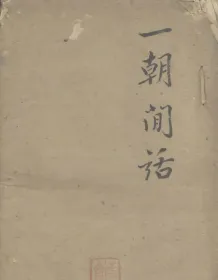 一朝閒话